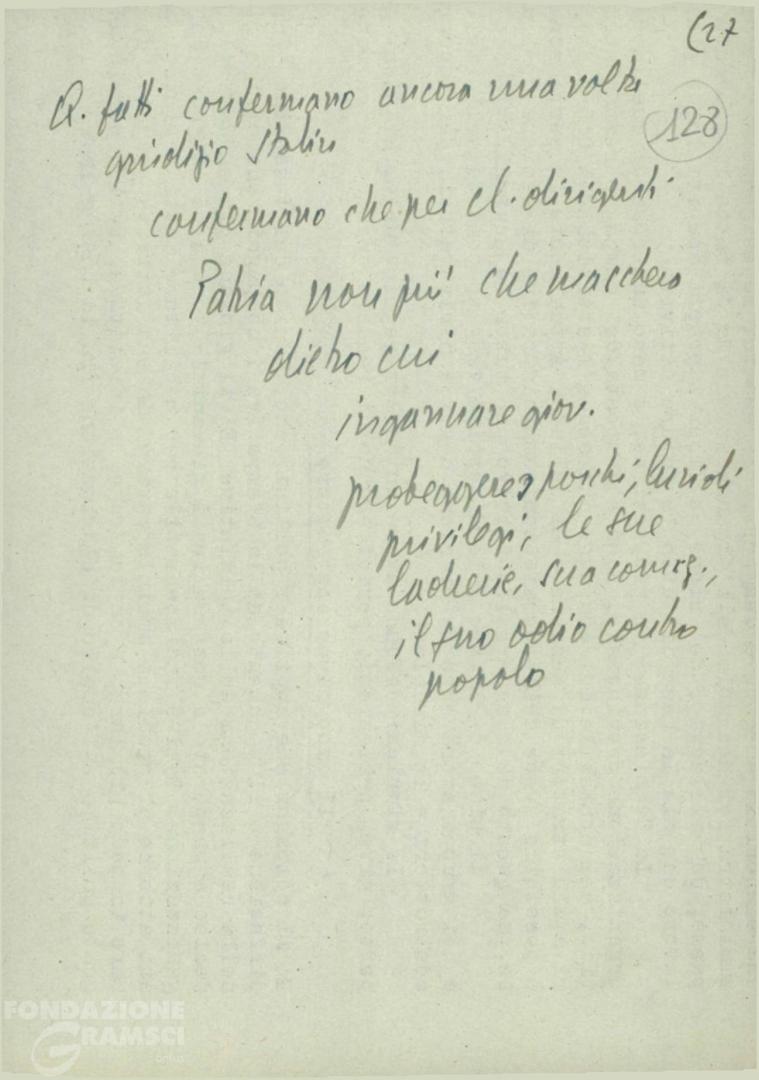 (27
128
Q. fatti confermano ancora una volta
giudizio Stalin
confermano che per cl. dirigenti
Patria non più che maschera
dietro cui
ingannare giov.
proteggere sporchi, luridi
privilegi, le sue
ladrerie, sua
il suo odio contro
popolo
FONDAZIONE
GRAMSCI
onlus